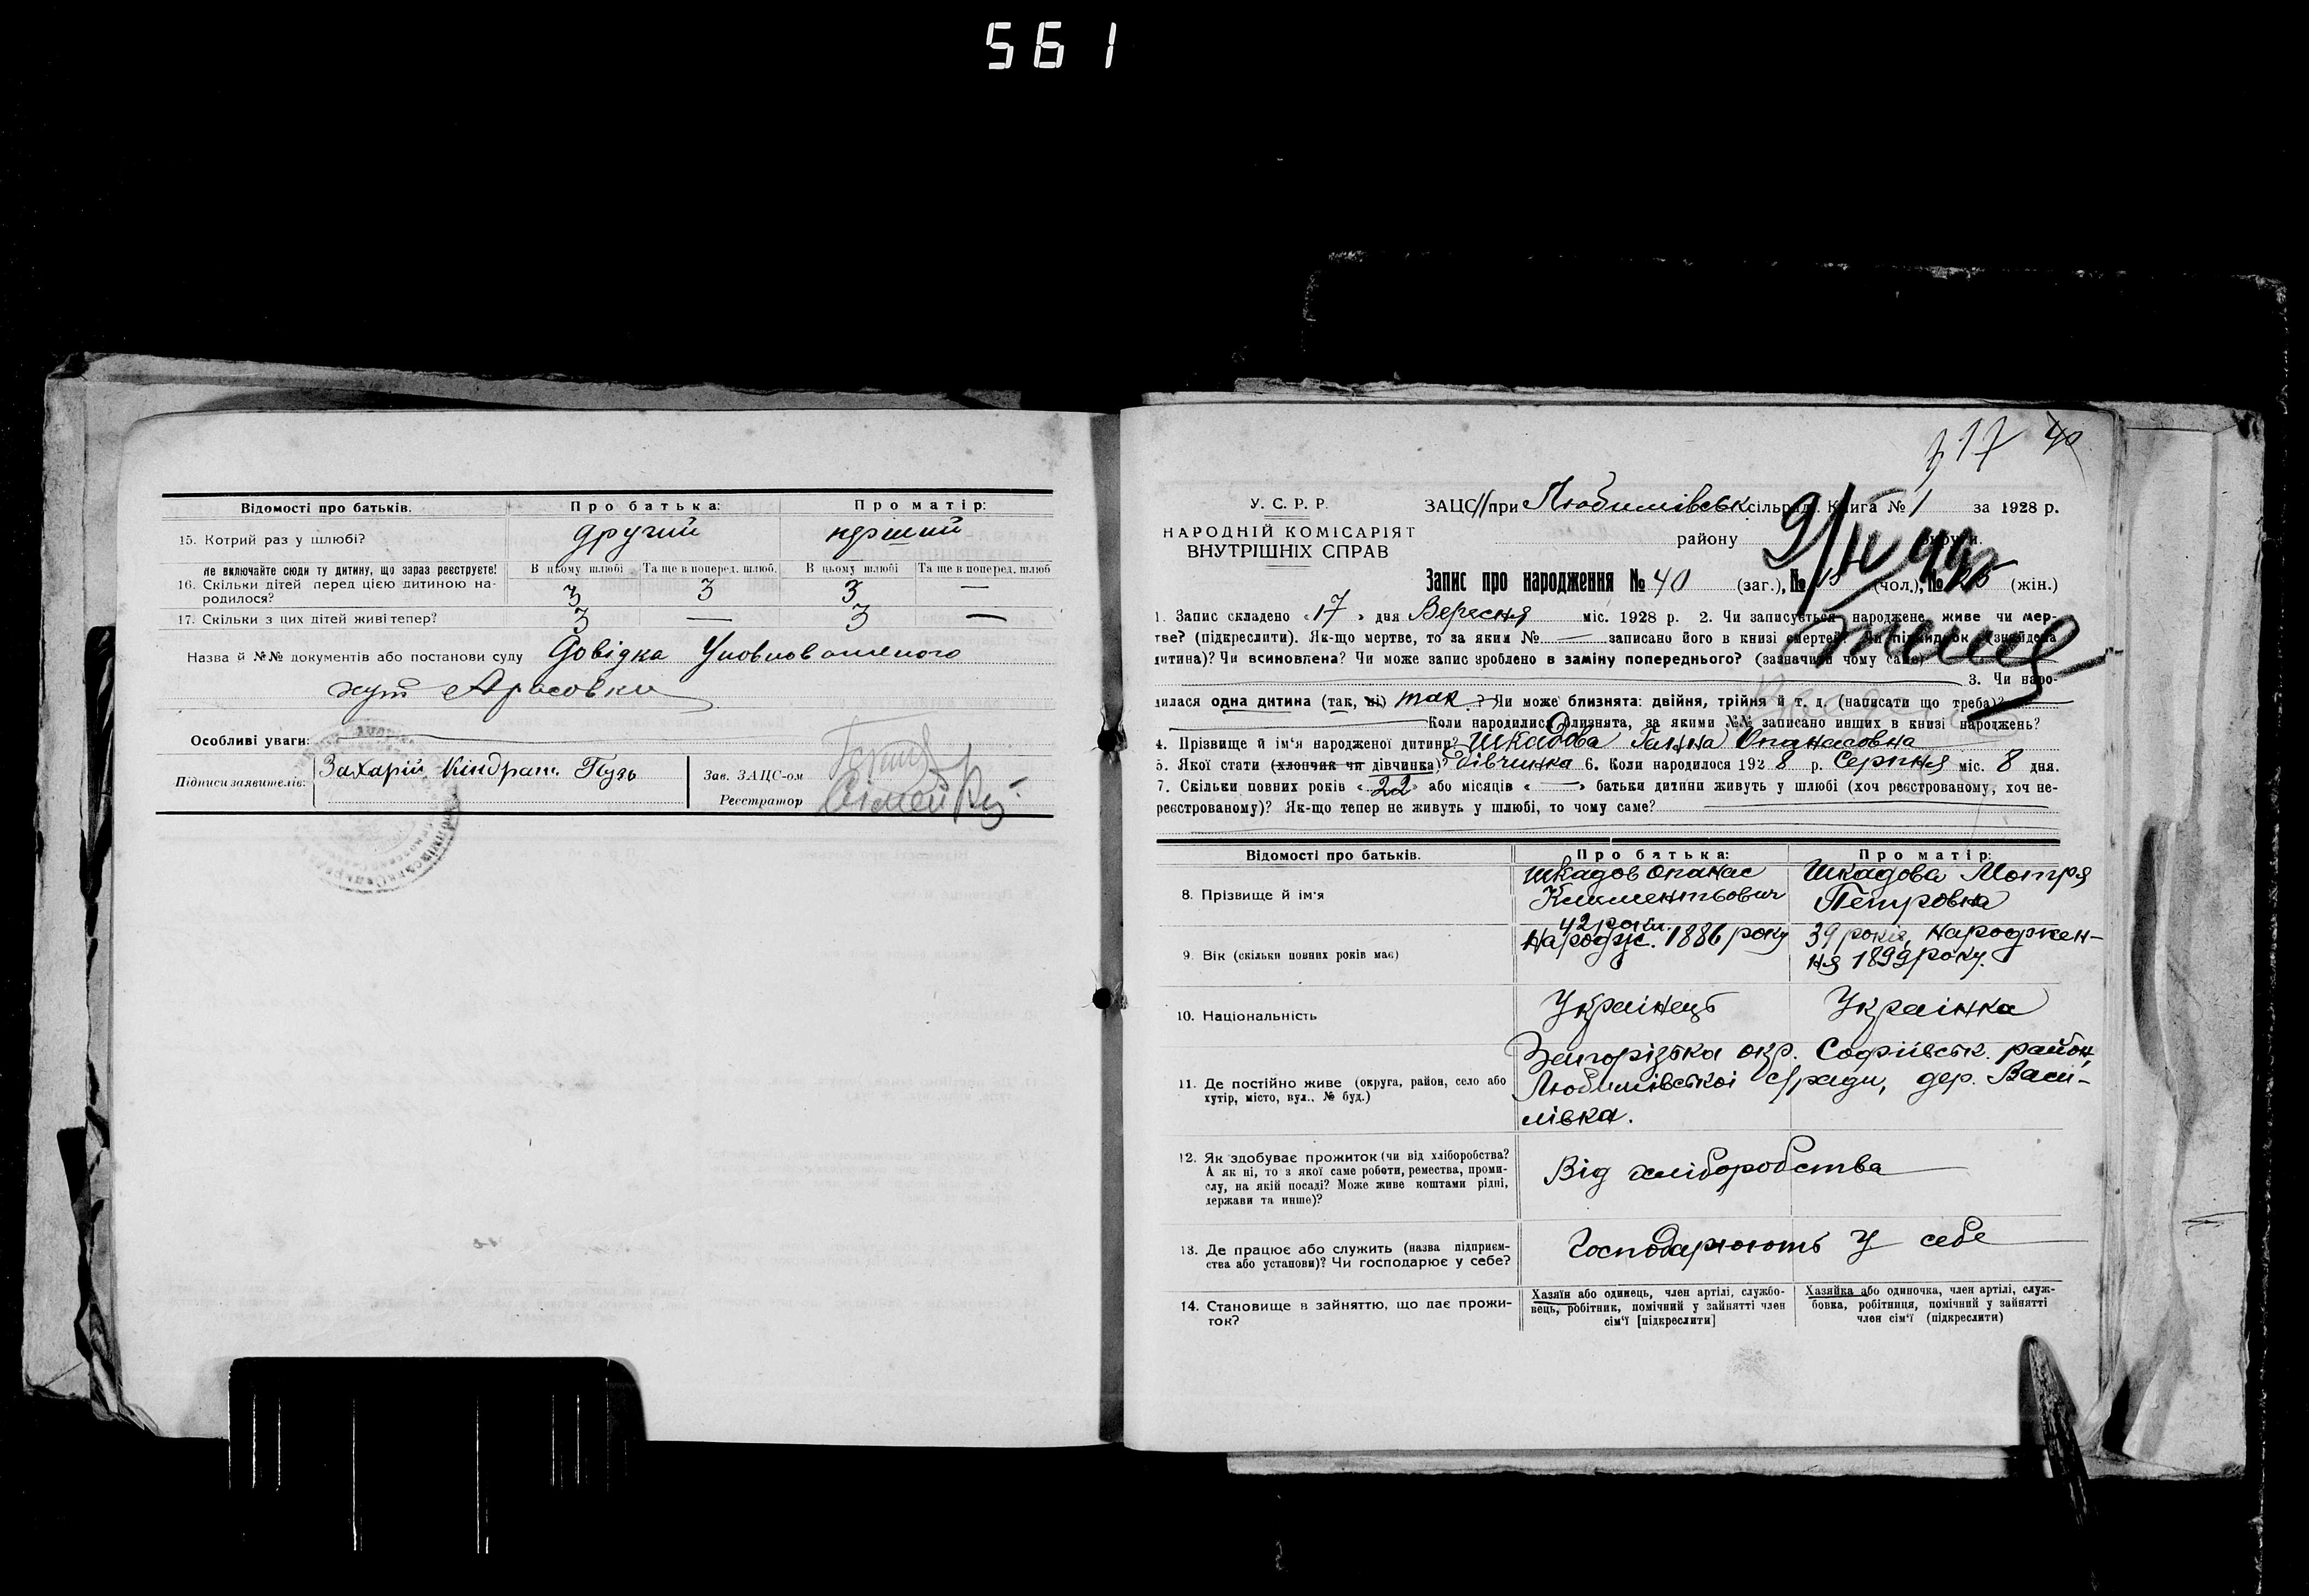 561
Відомості про батьків. Про батька: Про матір:
15. Котрий раз у шлюбі? другий перший
Не включайте сюди ту дитину, що зараз реєструєте! В цьому шлюбі Та ще в поперед. шлюб. В цьому шлюбі Та ще в поперед. шлюб
16. Скільки дітей перед цією дитиною на-
родилося? 3 3 3 —
17. Скільки з цих дітей живі тепер? 3 — 3 —
Назва й №№ документів або постанови суду Довідка Уповноваженого
хут
Особливі уваги:
Підписи заявителів: Захарій Кіндрат. Пузь
Зав. ЗАЦС-ом
Реєстратор
117 40
У. С. Р. Р.
НАРОДНІЙ КОМІСАРІЯТ
ВНУТРІШНІХ СПРАВ
ЗАЦС//при Любимівськ сільраді. Книга № 1 за 1928 р.
району округи.
Запис про народження № 40 (заг.), № (чол.), № (жін.)
1. Запис складено «17» дня Вересня міс. 1928 р. 2. Чи записується народжене живе чи мер-
тве? (підкреслити). Як-що мертве, то за яким № — записано його в книзі смертей? Чи підкидьок (знайдена
дитина)? Чи всиновлена? Чи може запис зроблено в заміну попереднього? (зазначити чому саме)
3. Чи наро-
дилася одна дитина (так, ні) так ? Чи може близнята: двійня, трійня й т. д. (написати що треба)?
Коли народилися близнята, за якими №№ записано инших в книзі народжень?
4. Прізвище й ім'я народженої дитини? Шкадова Ганна Опанасовна
5. Якої стати (хлопчик чи дівчинка)? Дівчинка 6. Коли народилося 1928 р. Серпня міс. 8 дня.
7. Скільки повних років «22» або місяців «—» батьки дитини живуть у шлюбі (хоч реєстрованому, хоч не-
реєстрованому)? Як-що тепер не живуть у шлюбі, то чому саме?
Відомості про батьків. Про батька: Про матір:
8. Прізвище й ім'я
Шкадов Опанас
Климентьович
Шкадова Мотря
Петровна
9. Вік (скільки повних років має)
42 роки.
Народж. 1886 року
39 років, народжен-
ня 1899 року.
10. Національність Українець Українка
11. Де постійно живе (округа, район, село або
хутір, місто, вул.. № буд.)
Запорізька окр. Софіївськ. район,
Любимівської с/ради, дер. Васи-
лівка.
12. Як здобуває прожиток (чи від хліборобства?
А як ні, то з якої саме роботи, ремества, проми-
слу, на якій посаді? Може живе коштами рідні,
держави та инше)?
Від хліборобства
13. Де працює або служить (назва підприєм-
ства або установи)? Чи господарює у себе?
Господарюють у себе
14. Становище в зайняттю, що дає прожи-
ток?
Хазяїн або одинець, член артілі, службо-
вець, робітник, помічний у зайнятті член
сім'ї [підкреслити]
Хазяйка або одиночка, член артілі, служ-
бовка, робітниця, помічний у зайнятті
член сім'ї (підкреслити)